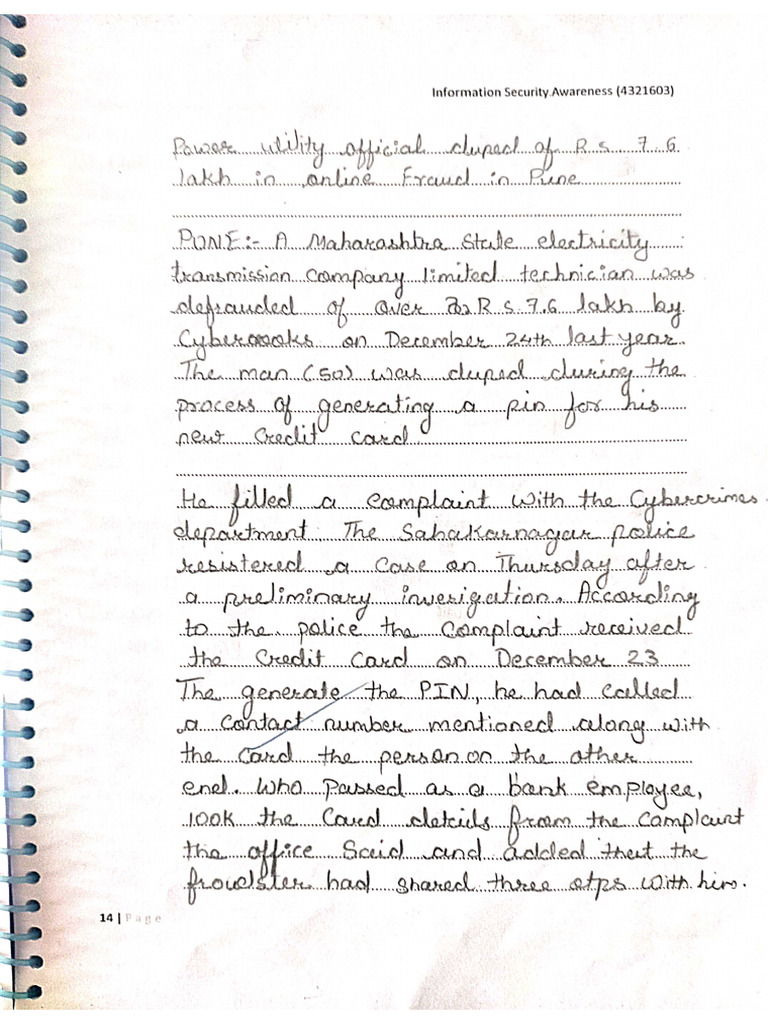 Information Security Awareness (4321603)
Power utility official duped of R.S. 7.6
lakh in online Fraud in Pune
PUNE:- A Maharashtra State electricity
transmission company limited technician was
defrauded of over R.S.7.6 lakh by
on December 24th last year.
The man (50) was duped during the
process of generating a pin for his
new credit card
He filled a complaint with the Cybercrimes
department. The Sahakarnagar police
resistered a case on Thursday after
a preliminary invesigation. According
to the police the Complaint received
the Credit Card on December 23
The generate the PIN, he had called
a contact number mentioned along with
the card the person on the other
end. Who passed as a bank employee,
100k the Card details from the complaint
the office Said and added that the
froudster had shared three otps with him.
14 | Page